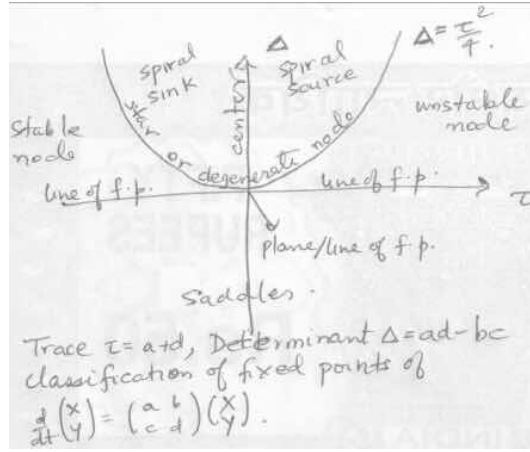 Δ
Δ = τ²/4.
spiral sink
spiral source
center
unstable node
stable node
star or degenerate node
line of f.p.
line of f.p.
τ
plane/line of f.p.
Saddles.
Trace τ = a+d, Determinant Δ = ad-bc
classification of fixed points of
d/dt (x y) = (a b c d)(x y).